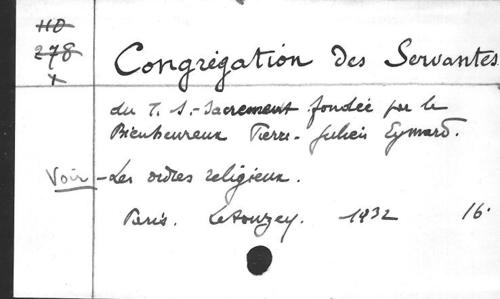 110
278
x
Congrégation des Servantes
du T. S.-Sacrement fondée par le
Bienheureux Pierre-Julien Eymard.
Voir - Les ordres religieux.
Paris. Letouzey. 1932 16.